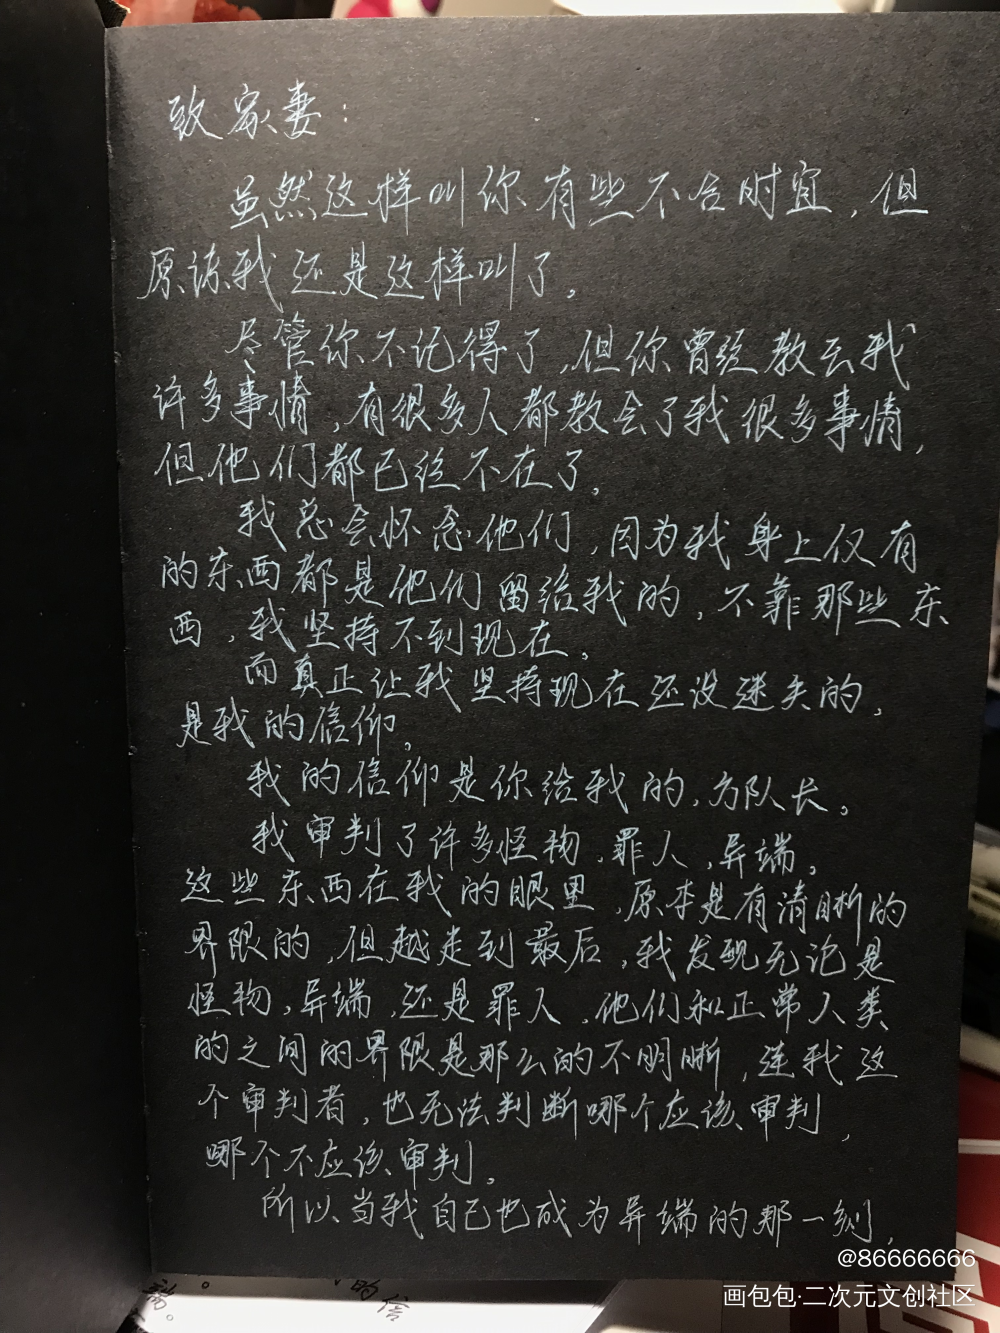 致家妻：
虽然这样叫你有些不合时宜，但
原谅我还是这样叫了。
尽管你不记得了，但你曾经教会我
许多事情，有很多人都教会了我很多事情，
但他们都已经不在了。
我总会怀念他们，因为我身上仅有
的东西都是他们留给我的，不靠那些东
西，我坚持不到现在。
而真正让我坚持现在还没迷失的，
是我的信仰。
我的信仰是你给我的，方队长。
我审判了许多怪物、罪人，异端。
这些东西在我的眼里，原本是有清晰的
界限的，但越走到最后，我发现无论是
怪物，异端，还是罪人，他们和正常人类
的之间的界限是那么的不明晰，连我这
个审判者，也无法判断哪个应该审判，
哪个不应该审判。
所以当我自己也成为异端的那一刻，
端。
的信
@86666666
画包包·二次元文创社区